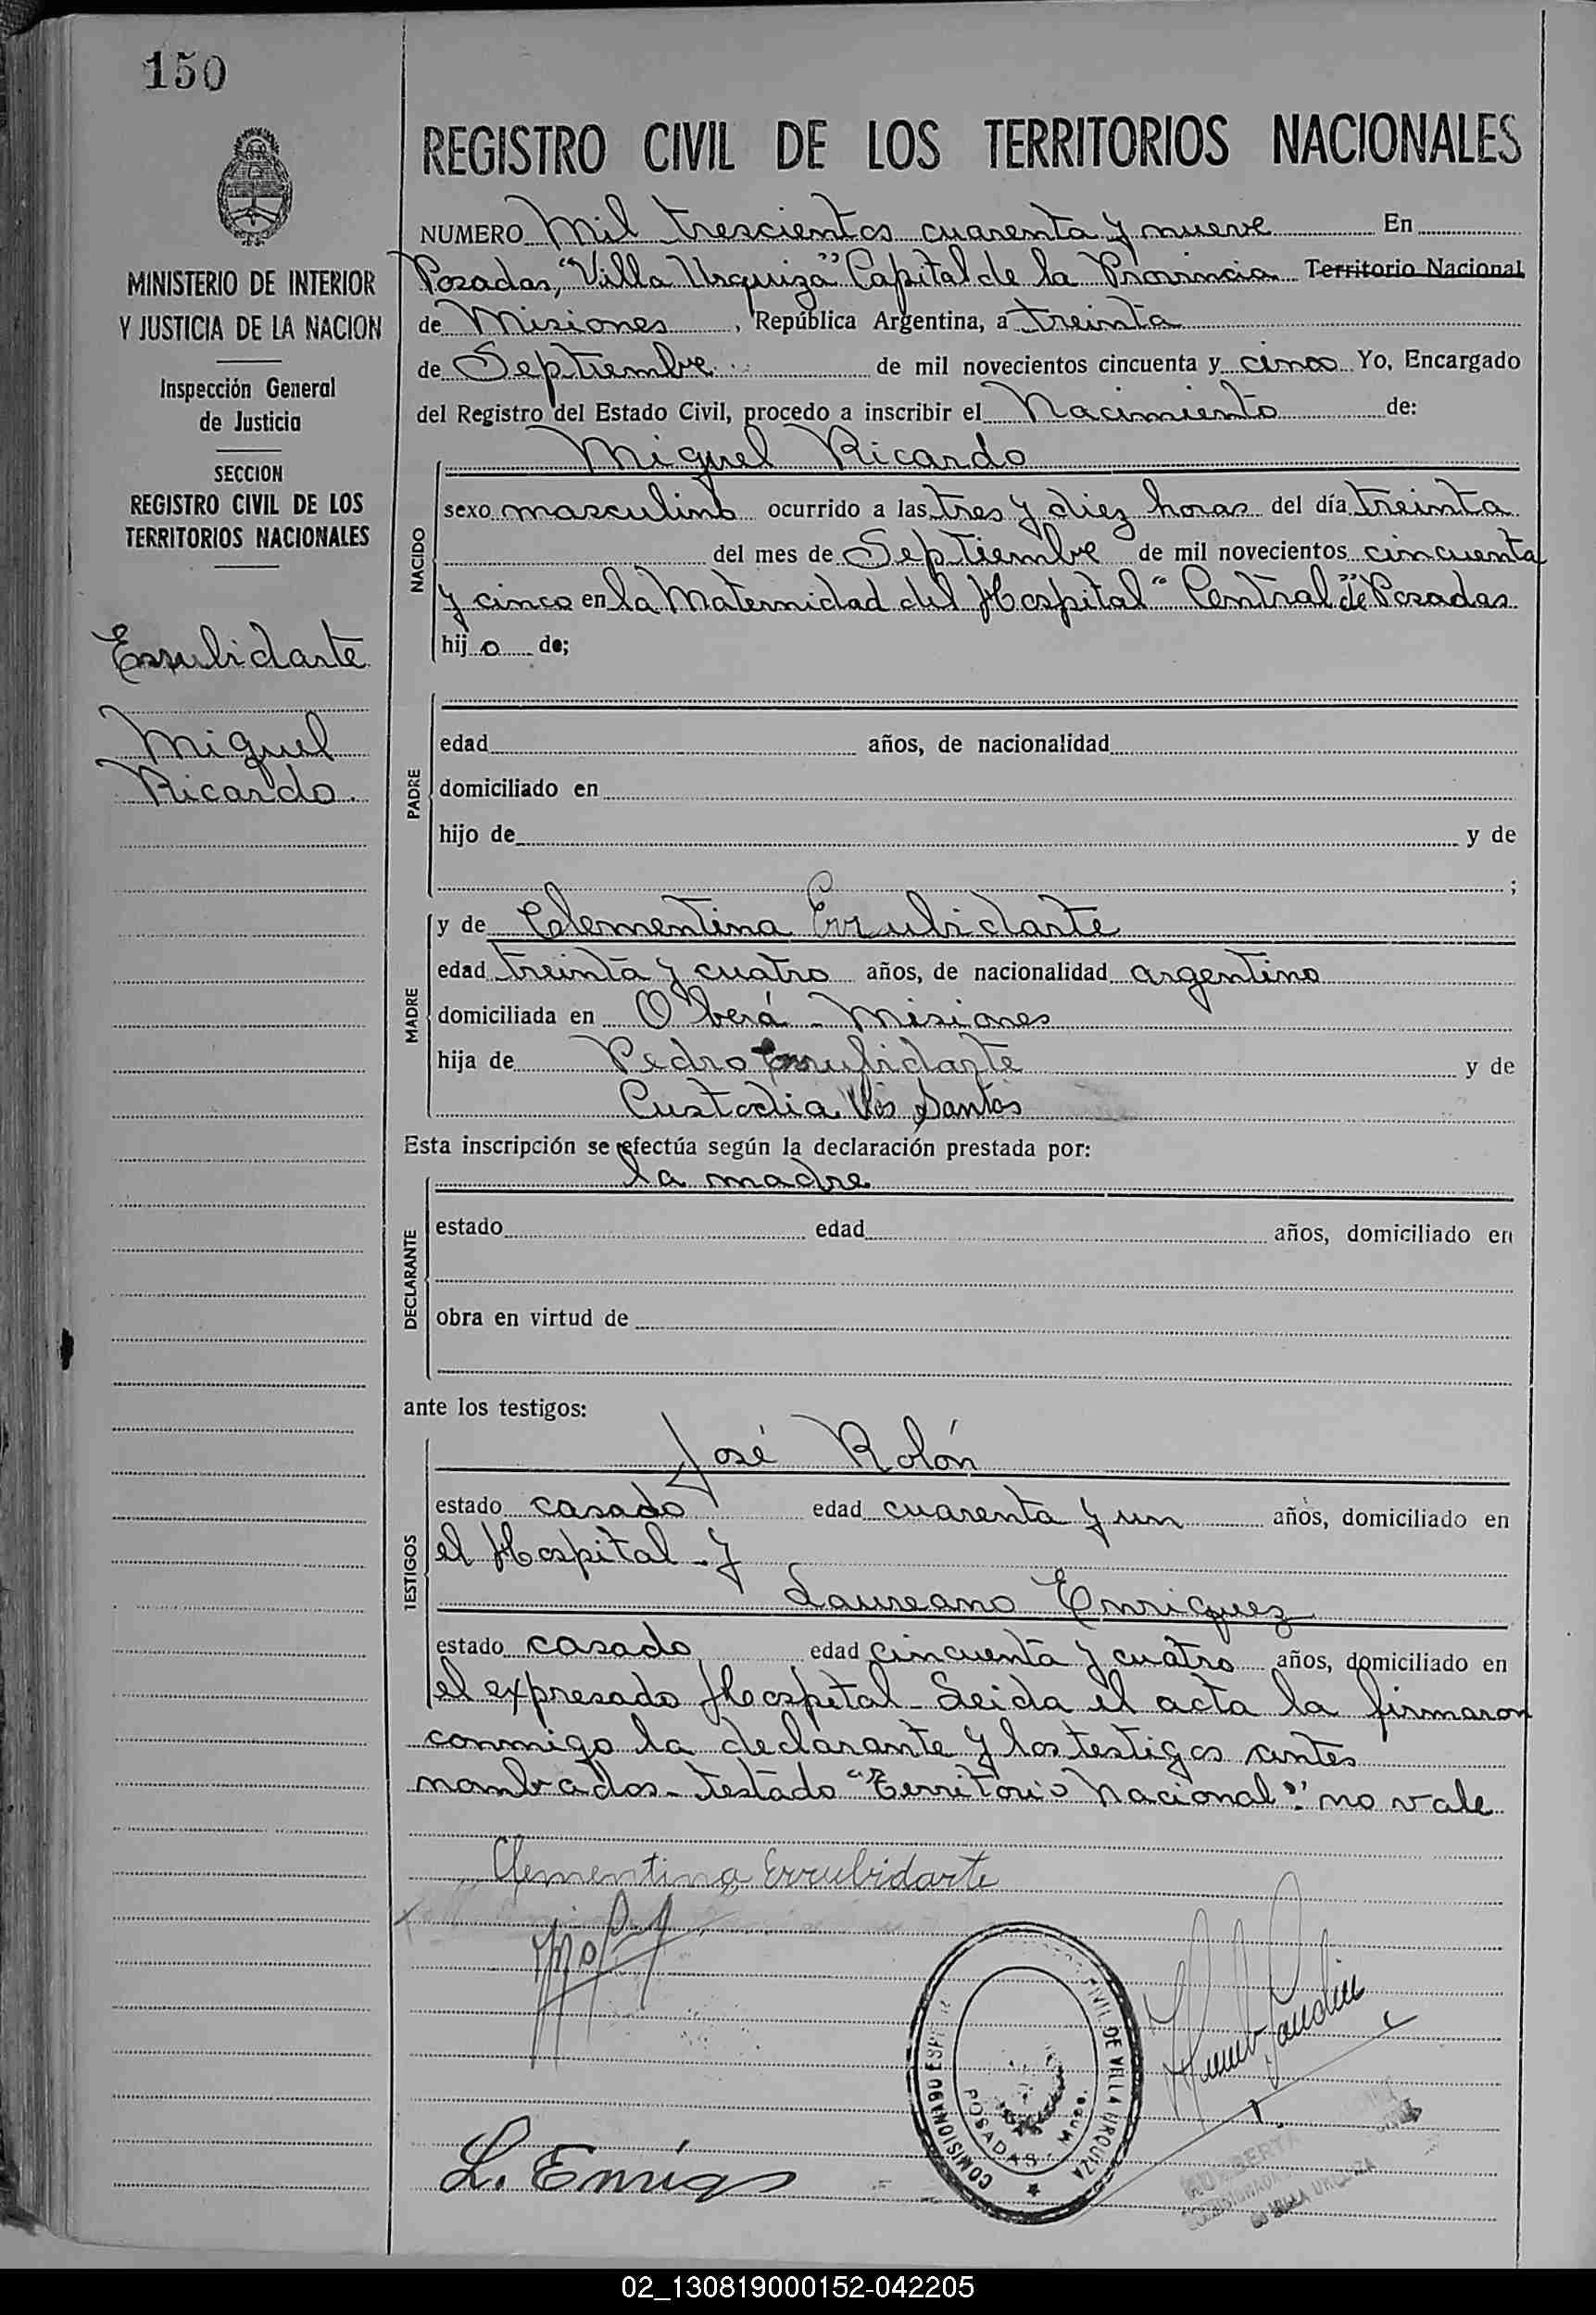 150
REGISTRO CIVIL DE LOS TERRITORIOS NACIONALES
MINISTERIO DE INTERIOR
Y JUSTICIA DE LA NACION
Inspección General
de Justicia
SECCION
REGISTRO CIVIL DE LOS
TERRITORIOS NACIONALES
Errubidarte
Miguel
Ricardo.
NUMERO Mil trescientos cuarenta y nueve En
Posadas, "Villa Urquiza" Capital de la Provincia Territorio Nacional
de Misiones, República Argentina, a treinta
de Septiembre de mil novecientos cincuenta y cinco Yo, Encargado
del Registro del Estado Civil, procedo a inscribir el Nacimiento de:
Miguel Ricardo
NACIDO
sexo masculino ocurrido a las tres y diez horas del día treinta
del mes de Septiembre de mil novecientos cincuenta
y cinco en la Maternidad del Hospital "Central" de Posadas
hijo de;
PADRE
edad años, de nacionalidad
domiciliado en
hijo de y de
;
MADRE
y de Clementina Errubidarte
edad treinta y cuatro años, de nacionalidad argentina
domiciliada en Oberá - Misiones
hija de Pedro Errubidarte y de
Custodia Dos Santos
Esta inscripción se efectúa según la declaración prestada por:
la madre
DECLARANTE
estado edad años, domiciliado en
obra en virtud de
ante los testigos:
TESTIGOS
José Rolón
estado casado edad cuarenta y un años, domiciliado en
el Hospital - y
Laureano Enriquez
estado casado edad cincuenta y cuatro años, domiciliado en
el expresado Hospital - Leida el acta la firmaron
conmigo la declarante y los testigos antes
nombrados - testado "Territorio Nacional": no vale
Clementina Errubidarte
COMISIONADO CIVIL DE VILLA URQUIZA
POSADAS - Mnes.
VILLA URQUIZA
02_130819000152-042205